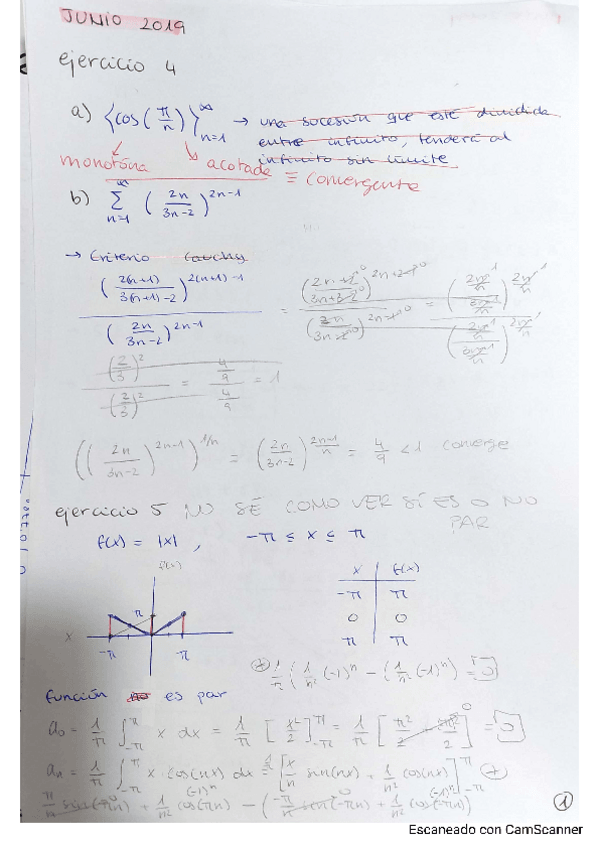 JUNIO 2019
ejercicio 4
a) {cos(π/n)}^∞_{n=1} → una sucesión que esté dividida
entre infinito, tenderá al
infinito sin límite
monotóna acotada ≡ convergente
b) ∑^∞_{n=1} (2n/(3n-2))^{2n-1}
→ Criterio Cauchy
(2(n+1)/(3(n+1)-2))^{2(n+1)-1} / (2n/(3n-2))^{2n-1} =
(2/3)^2 / (2/3)^2 = (4/9) / (4/9) = 1
((2n/(3n-2))^{2n-1})^{1/n} = (2n/(3n-2))^{(2n-1)/n} = 4/9 < 1 converge
ejercicio 5 NO SÉ COMO VER SI ES O NO
PAR
f(x) = |x| , -π ≤ x ≤ π
f(x)
x f(x)
-π π
0 0
π π
π
x -π π
(*) 1/π (1/n² (-1)^n - (1/n² (-1)^n) = 0
función es par
a₀ = 1/π ∫_{-π}^{π} x dx = 1/π [x²/2]_{-π}^{π} = 1/π [π²/2 - π²/2] = 0
aₙ = 1/π ∫_{-π}^{π} x cos(nx) dx = [x/n sin(nx) + 1/n² cos(nx)]_{-π}^{π} (*)
π/n sin(πn) + 1/n² cos(πn) - (-π/n sin(-πn) + 1/n² cos(-πn))
1
Escaneado con CamScanner